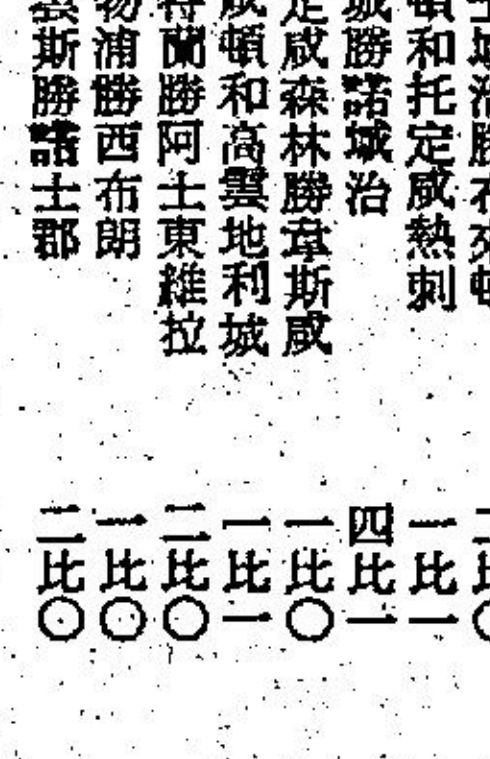 頓和托定咸熱刺 一比一
城勝諾城治 四比一
定咸森林勝韋斯咸 一比〇
咸頓和高雲地利城 一比一
特蘭勝阿士東維拉 二比〇
物浦勝西布朗 一比〇
斯勝諾士郡 二比〇